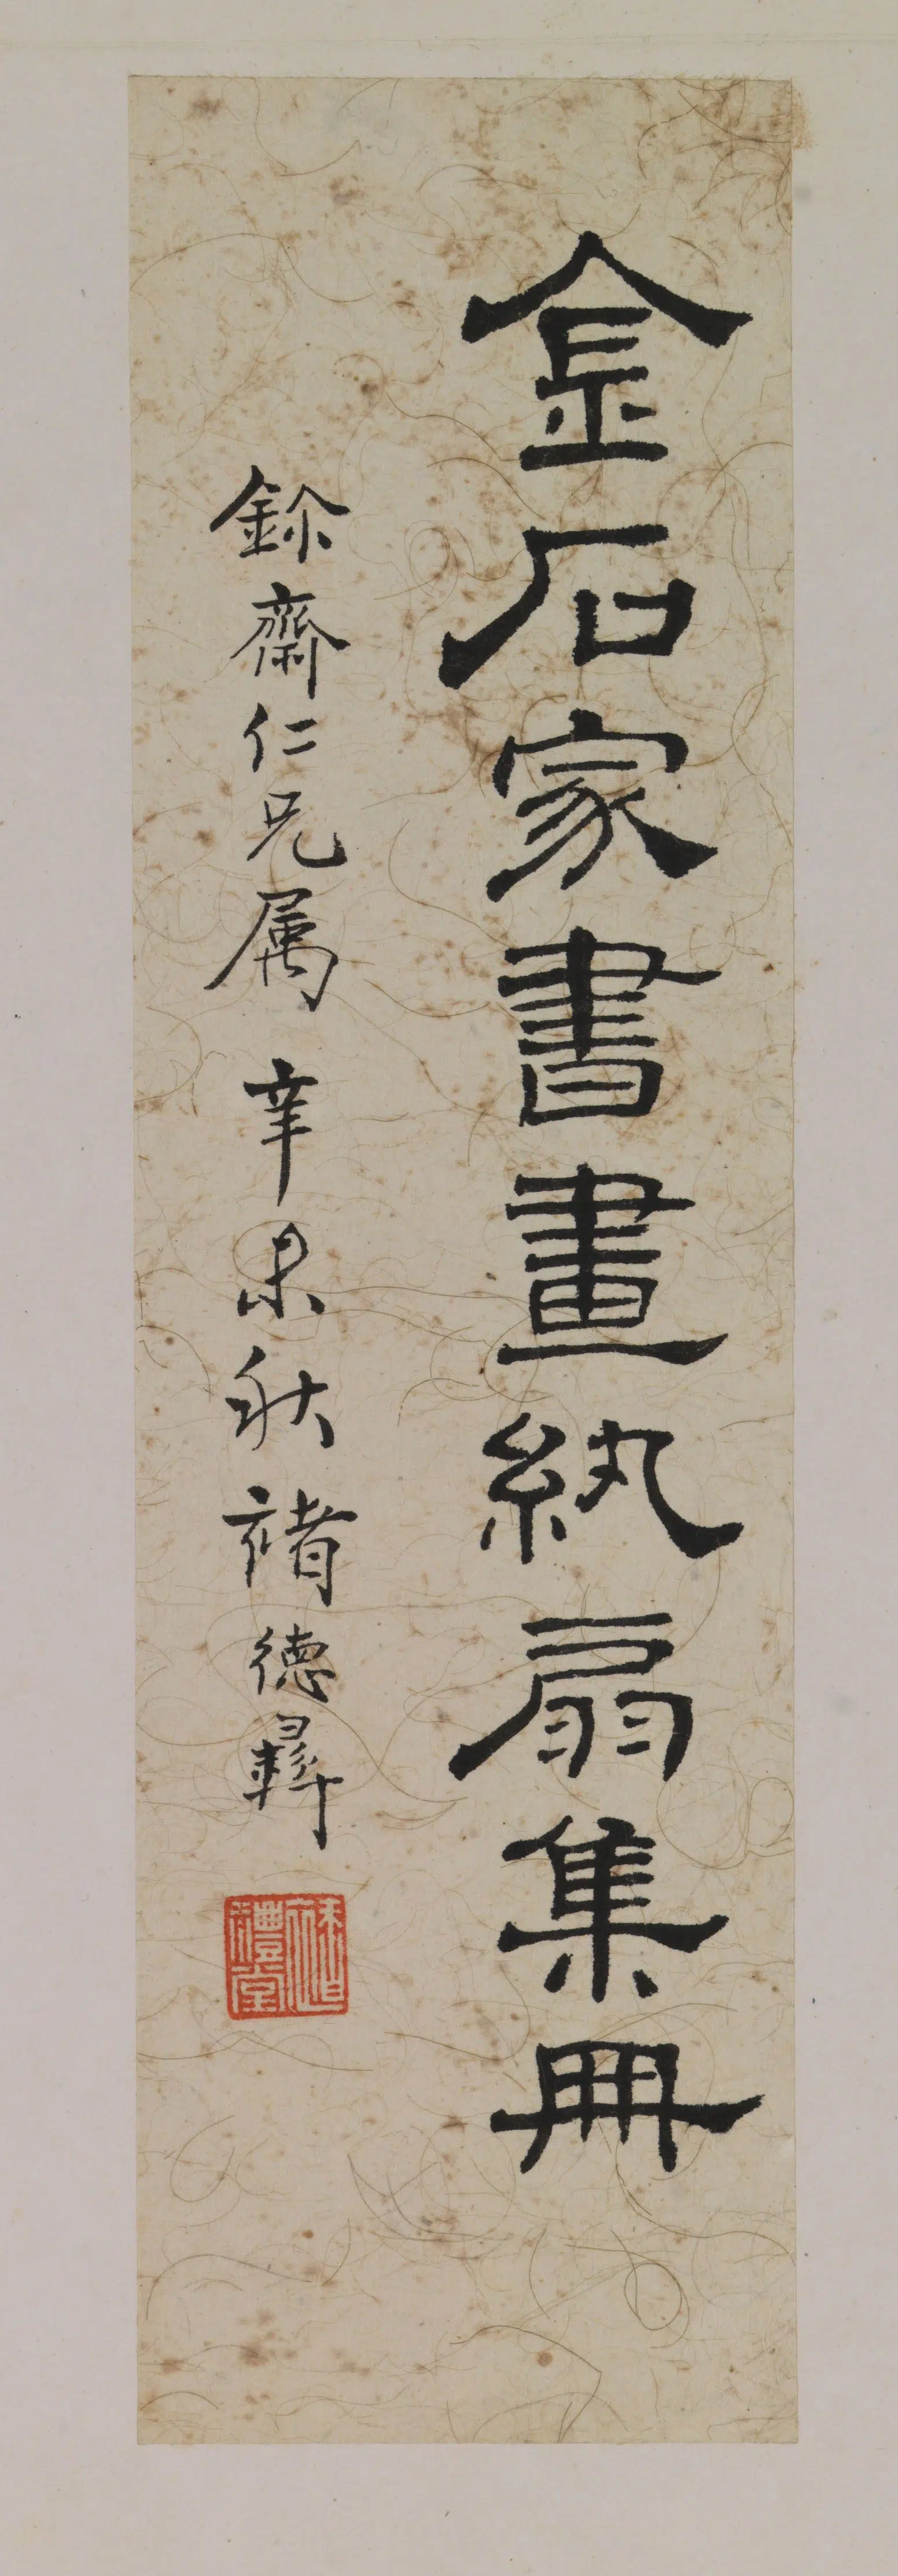 金石家書畫紈扇集冊
鉨齋仁兄属 辛未秋 褚德彝
褚禮堂